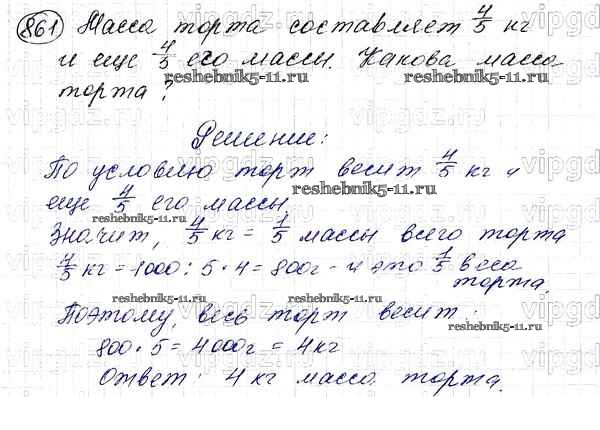 861 Масса торта составляет 4/5 кг
и еще 4/5 его массы. Какова масса
reshebnik5-11.ru
торта?
Решение:
По условию торт весит 4/5 кг и
reshebnik5-11.ru
еще 4/5 его массы
reshebnik5-11.ru
Значит, 4/5 кг = 1/5 массы всего торта
4/5 кг = 1000 : 5 · 4 = 800г - и это 1/5 веса
торта.
reshebnik5-11.ru reshebnik5-11.ru
Поэтому, весь торт весит:
reshebnik5-11.ru
800 · 5 = 4000г = 4 кг
Ответ: 4 кг масса торта.